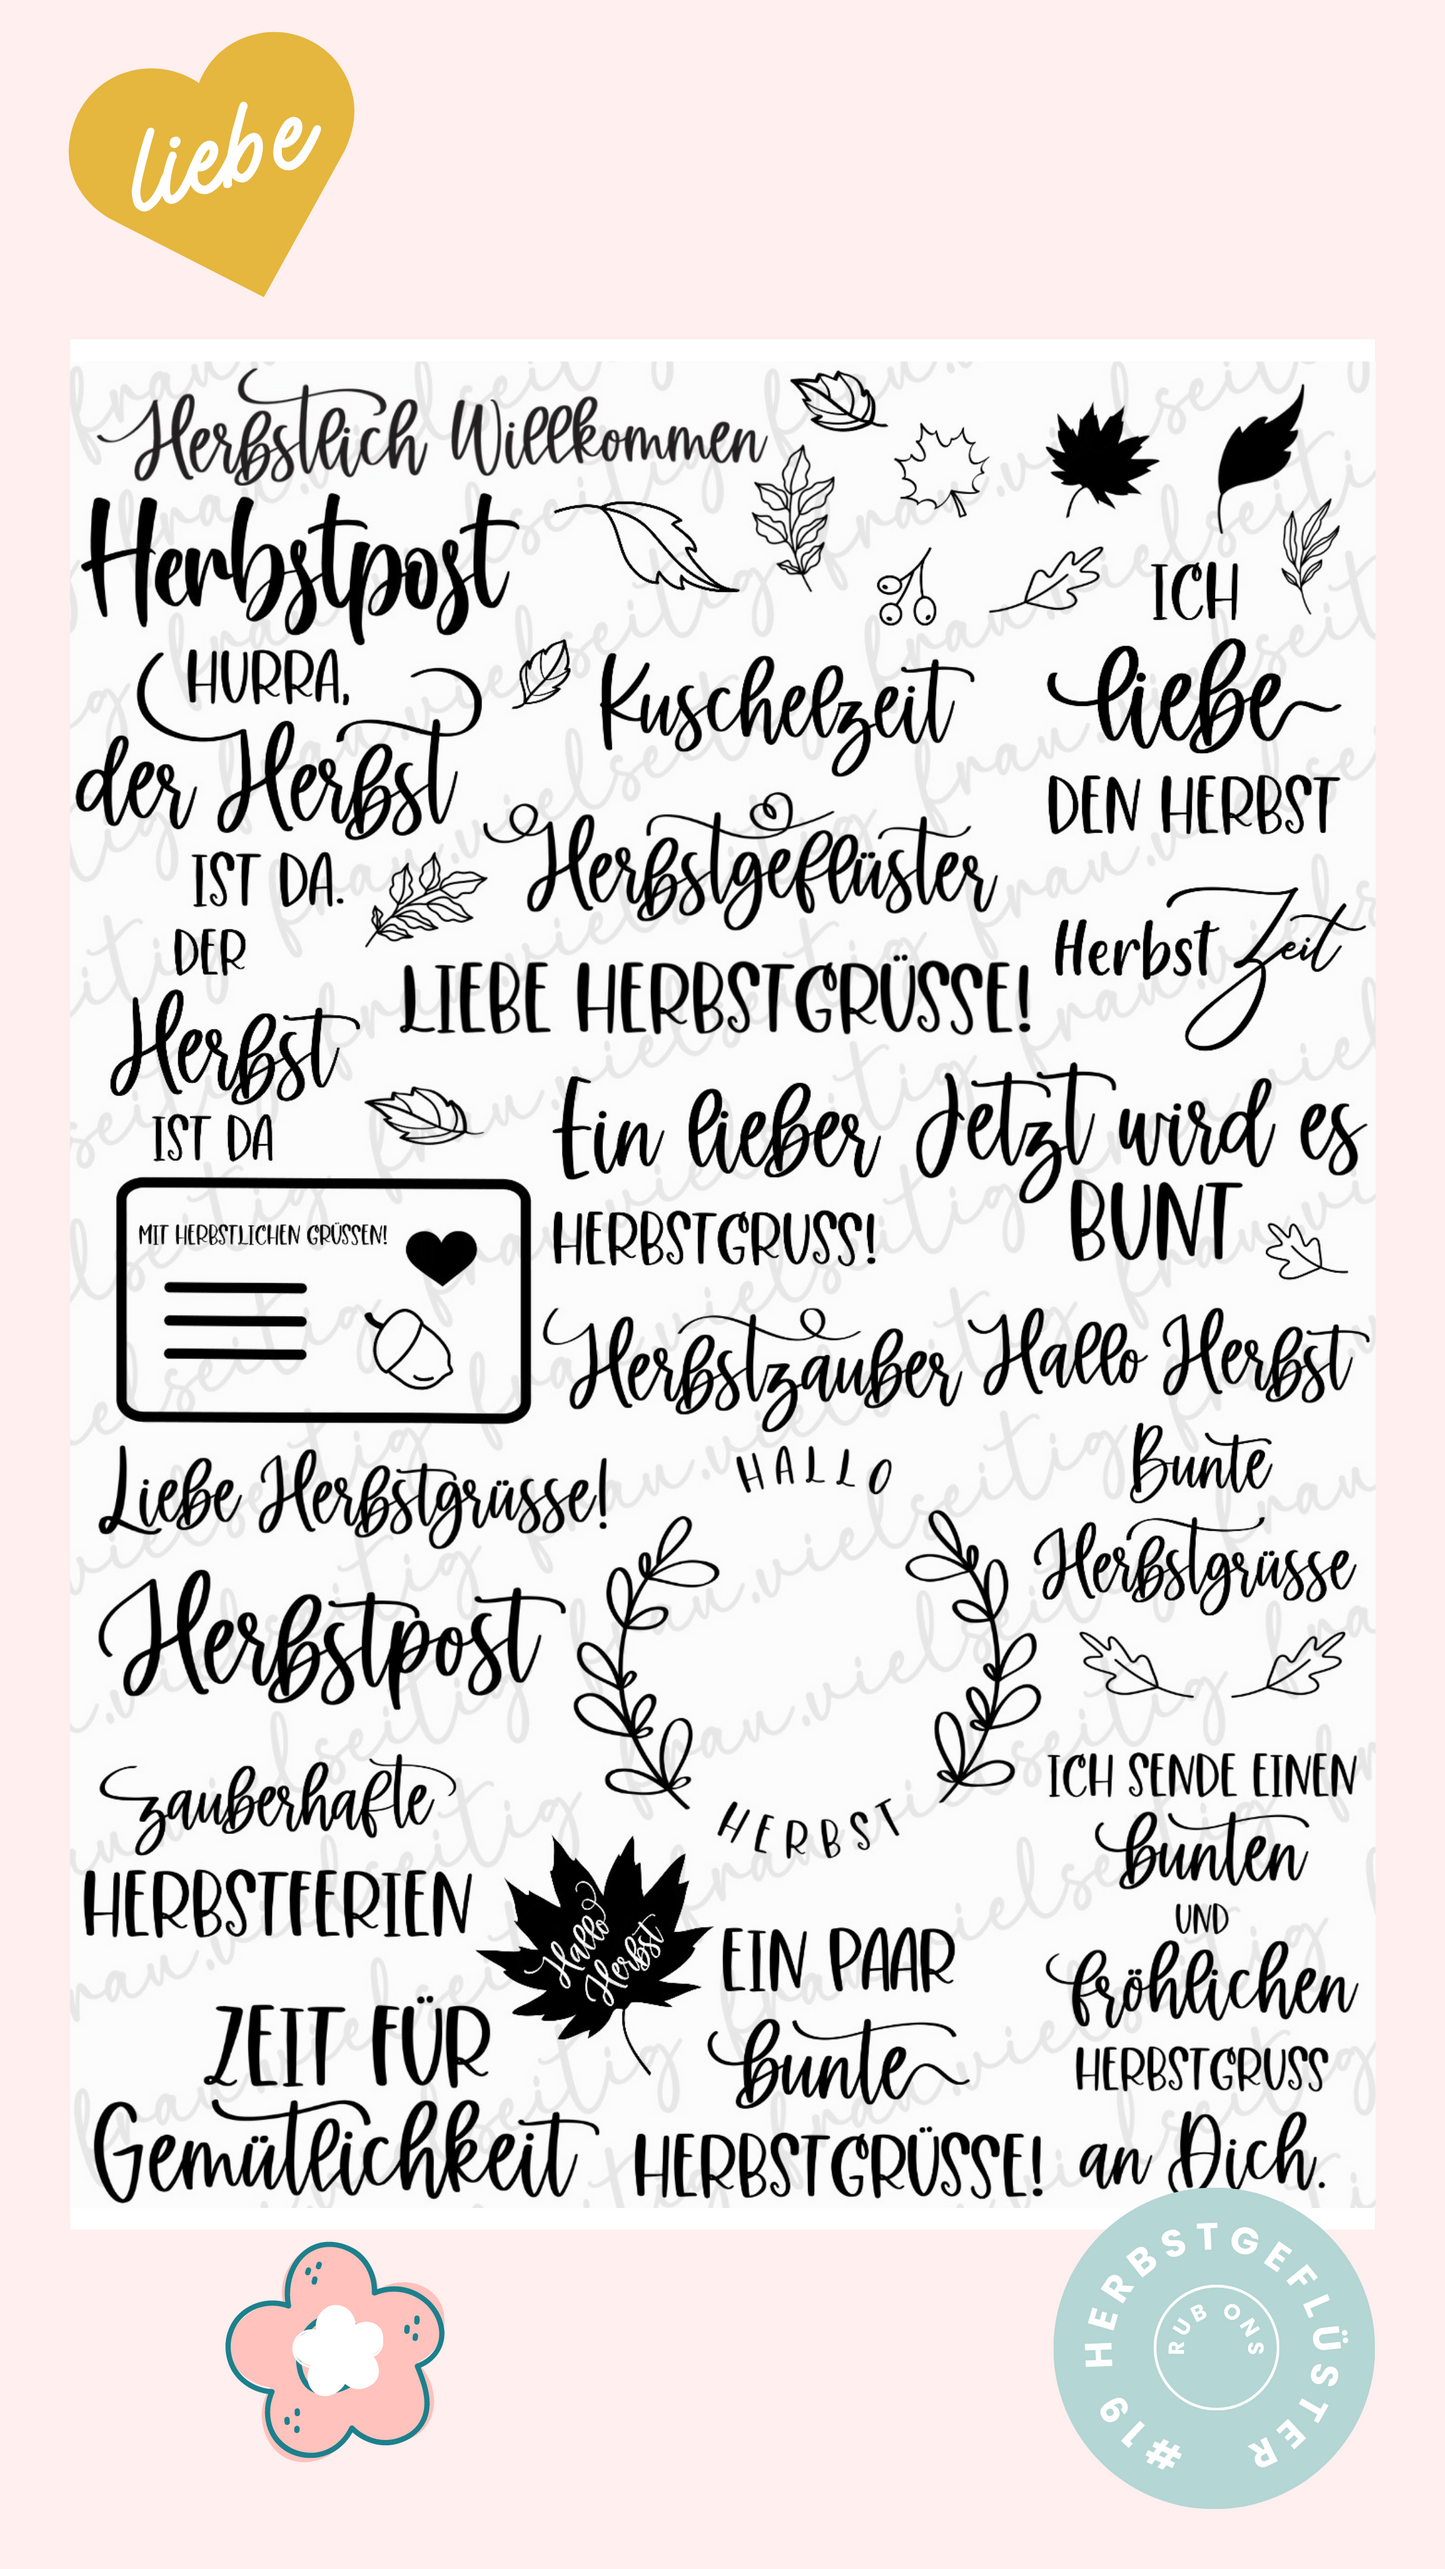 liebe
Herbstlich Willkommen
Herbstpost
HURRA,
der Herbst
IST DA.
Kuschelzeit
ICH
liebe
DEN HERBST
Herbstgeflüster
Herbst Zeit
DER
Herbst
IST DA
LIEBE HERBSTGRÜSSE!
Ein lieber
HERBSTGRUSS!
Jetzt wird es
BUNT
MIT HERBSTLICHEN GRÜSSEN!
Herbstzauber
Hallo Herbst
Liebe Herbstgrüsse!
HALLO
HERBST
Bunte
Herbstgrüsse
Herbstpost
zauberhafte
HERBSTFERIEN
Hallo
Herbst
ICH SENDE EINEN
bunten
UND
fröhlichen
HERBSTGRUSS
an Dich.
ZEIT FÜR
Gemütlichkeit
EIN PAAR
bunte
HERBSTGRÜSSE!
frau.vielseitig
#19 HERBSTGEFLÜSTER
RUB ONS